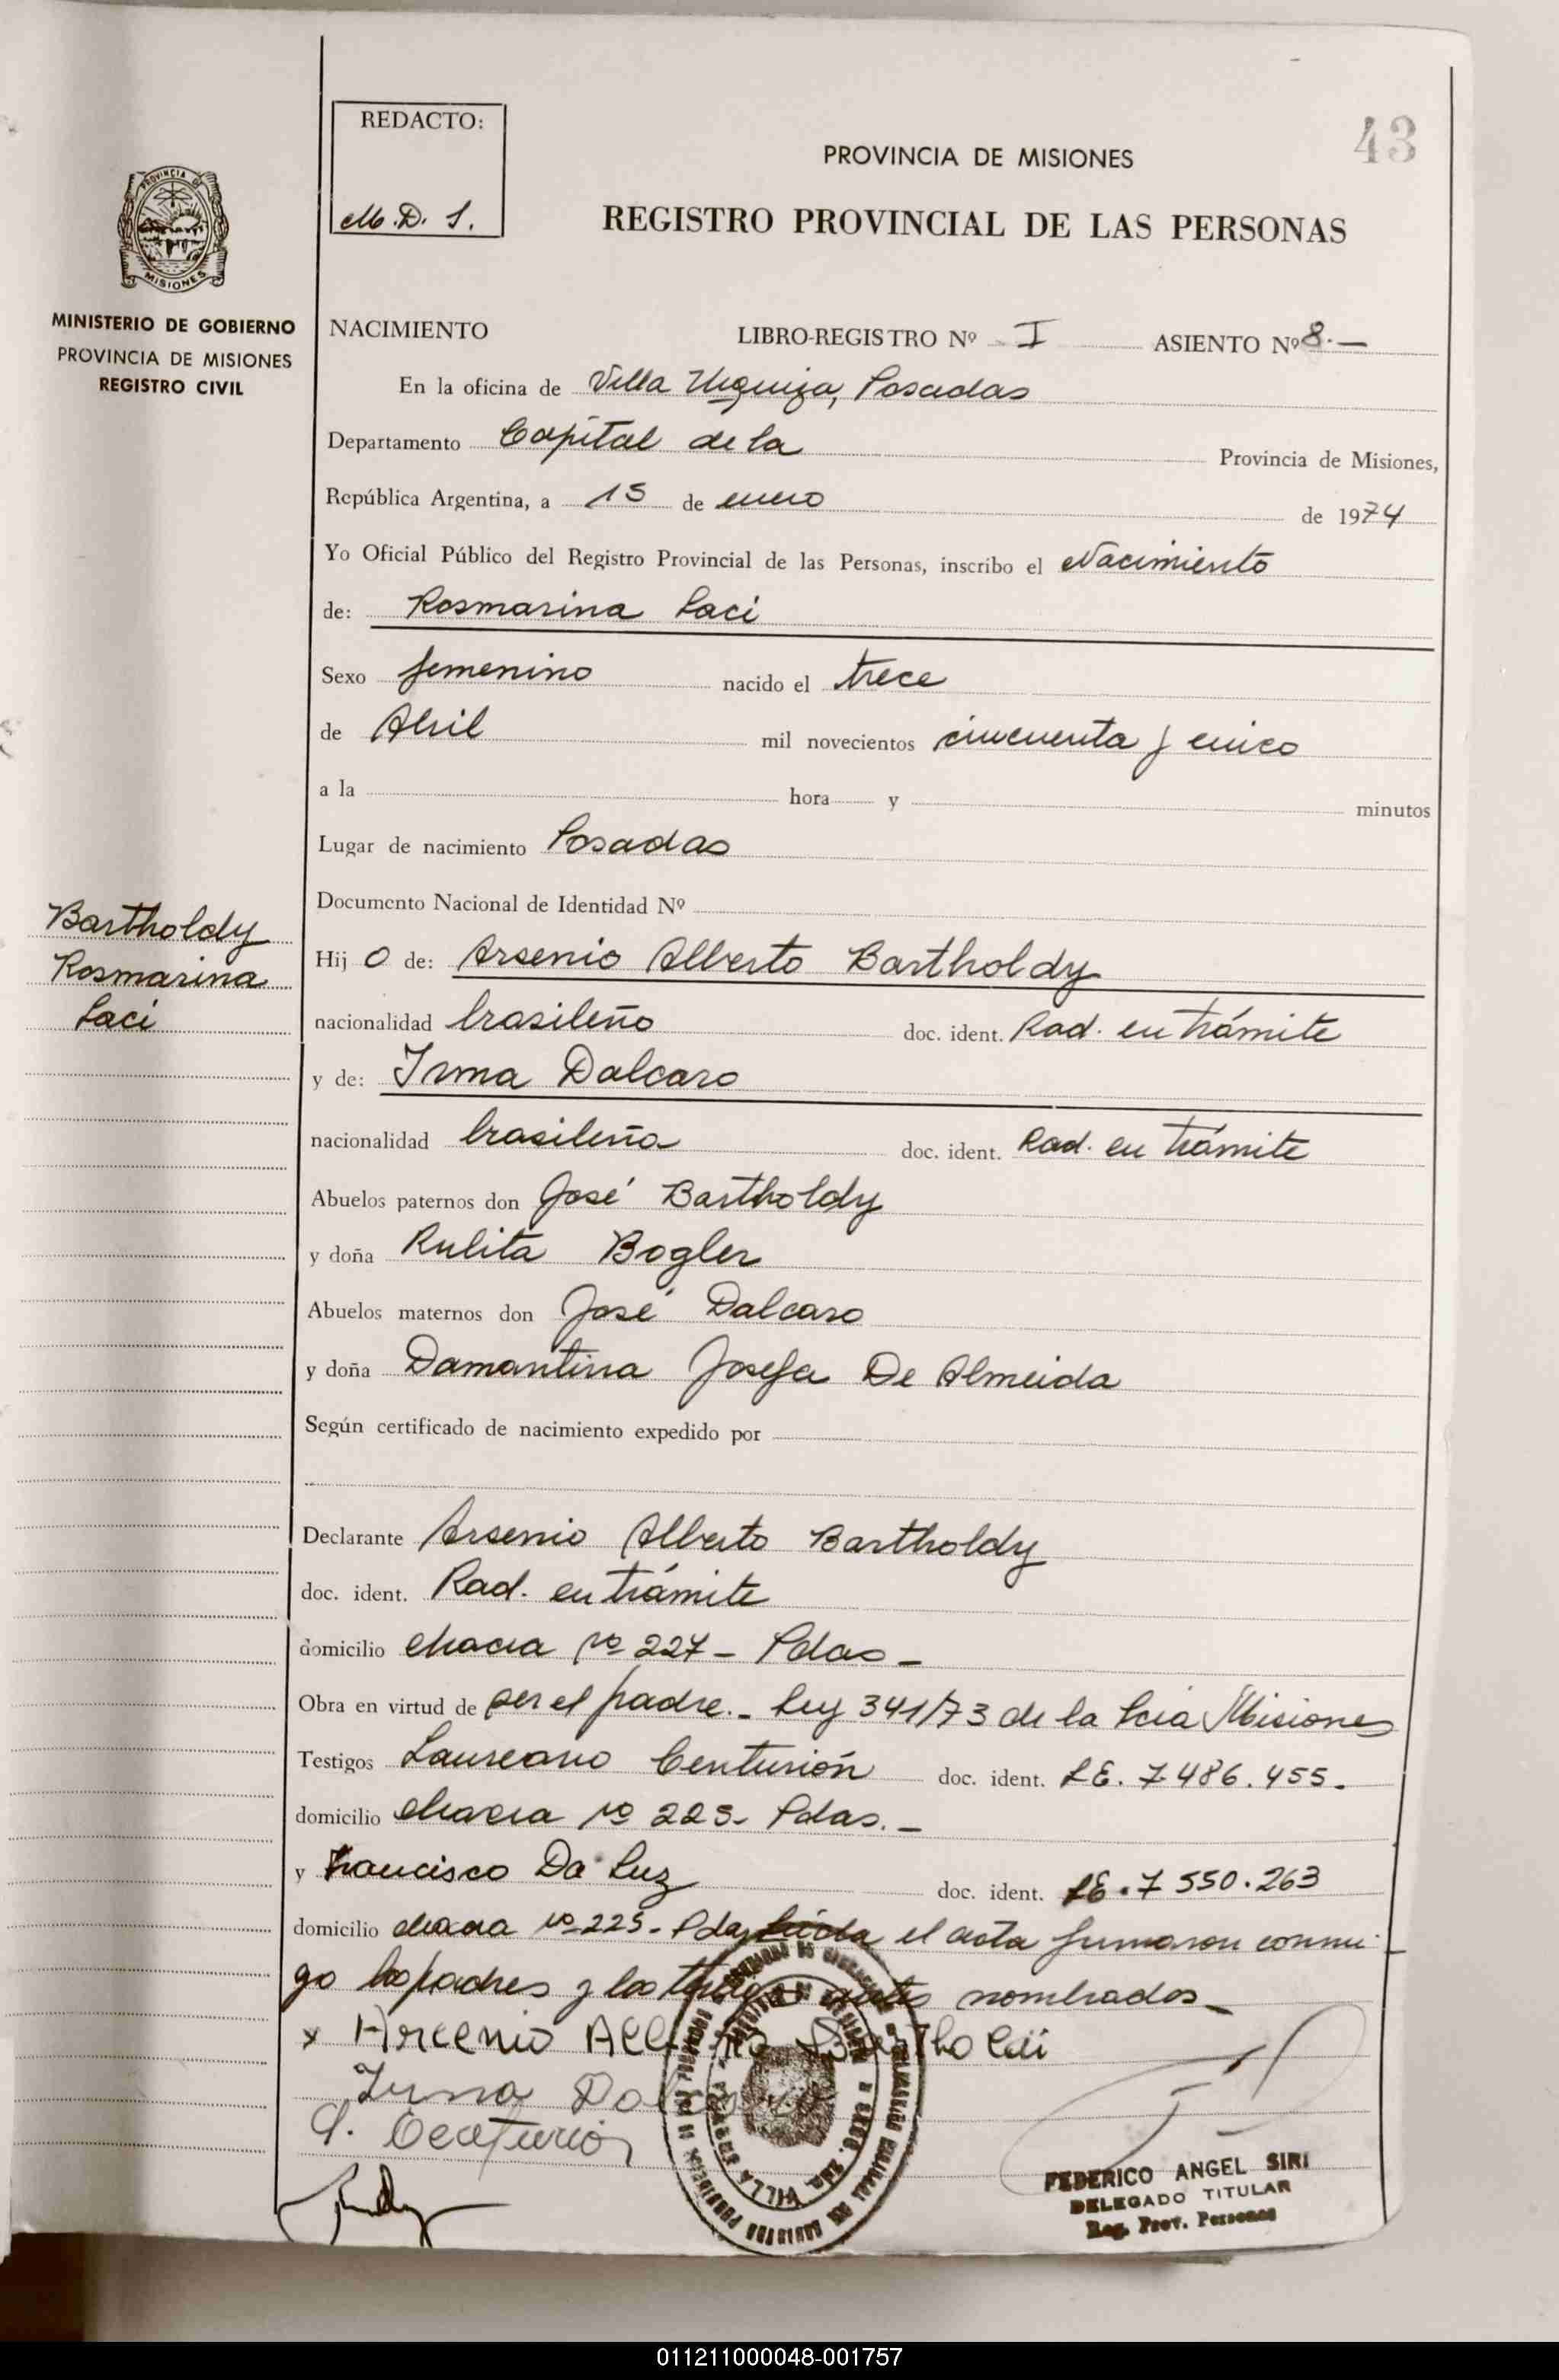 43
REDACTO:
M. D. S.
PROVINCIA DE MISIONES
REGISTRO PROVINCIAL DE LAS PERSONAS
PROVINCIA DE
MISIONES
MINISTERIO DE GOBIERNO
PROVINCIA DE MISIONES
REGISTRO CIVIL
NACIMIENTO LIBRO-REGISTRO Nº I ASIENTO Nº 8.—
En la oficina de Villa Urquiza, Posadas
Departamento Capital de la Provincia de Misiones,
República Argentina, a 15 de enero de 1974
Yo Oficial Público del Registro Provincial de las Personas, inscribo el Nacimiento
de: Rosmarina Laci
Sexo femenino nacido el trece
de Abril mil novecientos cincuenta y cinco
a la hora y minutos
Lugar de nacimiento Posadas
Documento Nacional de Identidad Nº
Bartholdy
Rosmarina
Laci
Hij o de: Arsenio Alberto Bartholdy
nacionalidad brasileño doc. ident. Rad. en trámite
y de: Irma Dalcaro
nacionalidad brasileña doc. ident. Rad. en trámite
Abuelos paternos don José Bartholdy
y doña Rulita Bogler
Abuelos maternos don José Dalcaro
y doña Damantina Josefa De Almeida
Según certificado de nacimiento expedido por
Declarante Arsenio Alberto Bartholdy
doc. ident. Rad. en trámite
domicilio chacra nº 227 - Pdas -
Obra en virtud de ser el padre.- Ley 341/73 de la Pcia Misiones
Testigos Laureano Centurión doc. ident. LE. 7486.455.
domicilio chacra nº 225- Pdas.-
y Francisco Da Luz doc. ident. LE. 7 550.263
domicilio chacra nº 225- Pdas Leída el acta firmaron conmi-
go los padres y los testigos antes nombrados-
x Arcenio Alberto Bartholdi
Irma Dalcaro
C. Centurion
VILLA
FEDERICO ANGEL SIRI
DELEGADO TITULAR
Reg. Prov. Personas
011211000048-001757